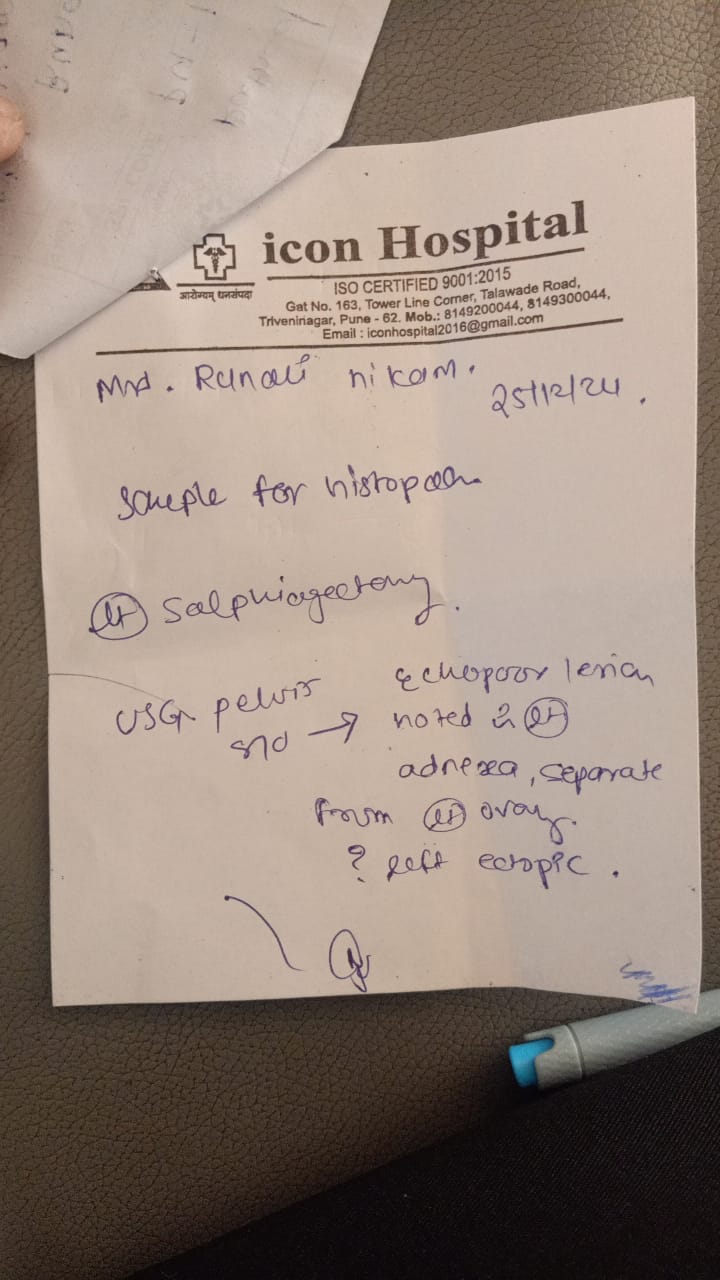 icon Hospital
आरोग्यम् धनसंपदा
ISO CERTIFIED 9001:2015
Gat No. 163, Tower Line Corner, Talawade Road,
Triveninagar, Pune - 62. Mob.: 8149200044, 8149300044,
Email : iconhospital2016@gmail.com
Mrs. nikam.
25/12/24.
Sample for histopath
Lt Salphingectomy.
USG pelvis Echopoor lesion
s/o → noted in Lt
adnexa, separate
from Lt ovary.
? left ectopic.